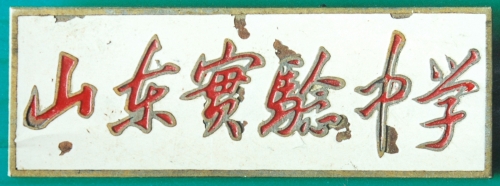 山东實驗中学